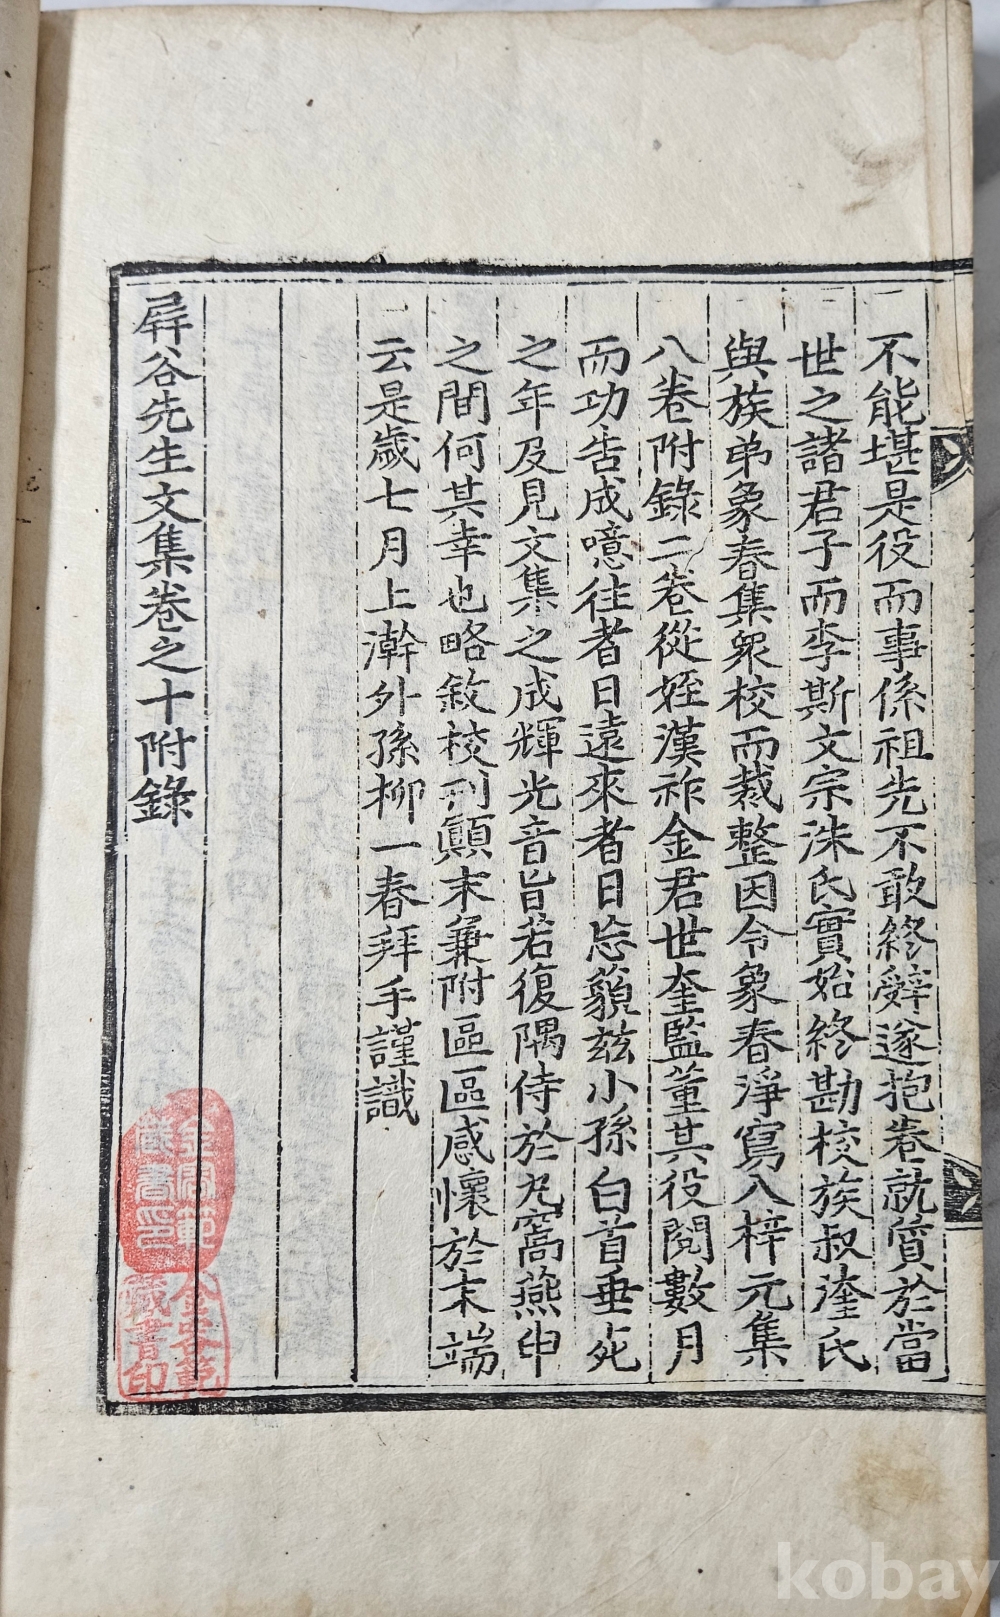 不能堪是役而事係祖先不敢終辭遂抱卷就質於當
世之諸君子而李斯文宗洙氏實始終勘校族叔漥氏
與族弟象春集衆校而裁整因令象春淨寫入梓元集
八卷附錄二卷從姪漢祚金君世奎監董其役閱數月
而功告成噫往者日遠來者日忘藐玆小孫白首垂死
之年及見文集之成輝光音旨若復隅侍於丸窩燕申
之間何其幸也略敘校刊顚末兼附區區感懷於末端
云是歲七月上澣外孫柳一春拜手謹識
屛谷先生文集卷之十附錄
藏書印
藏書印
kobay